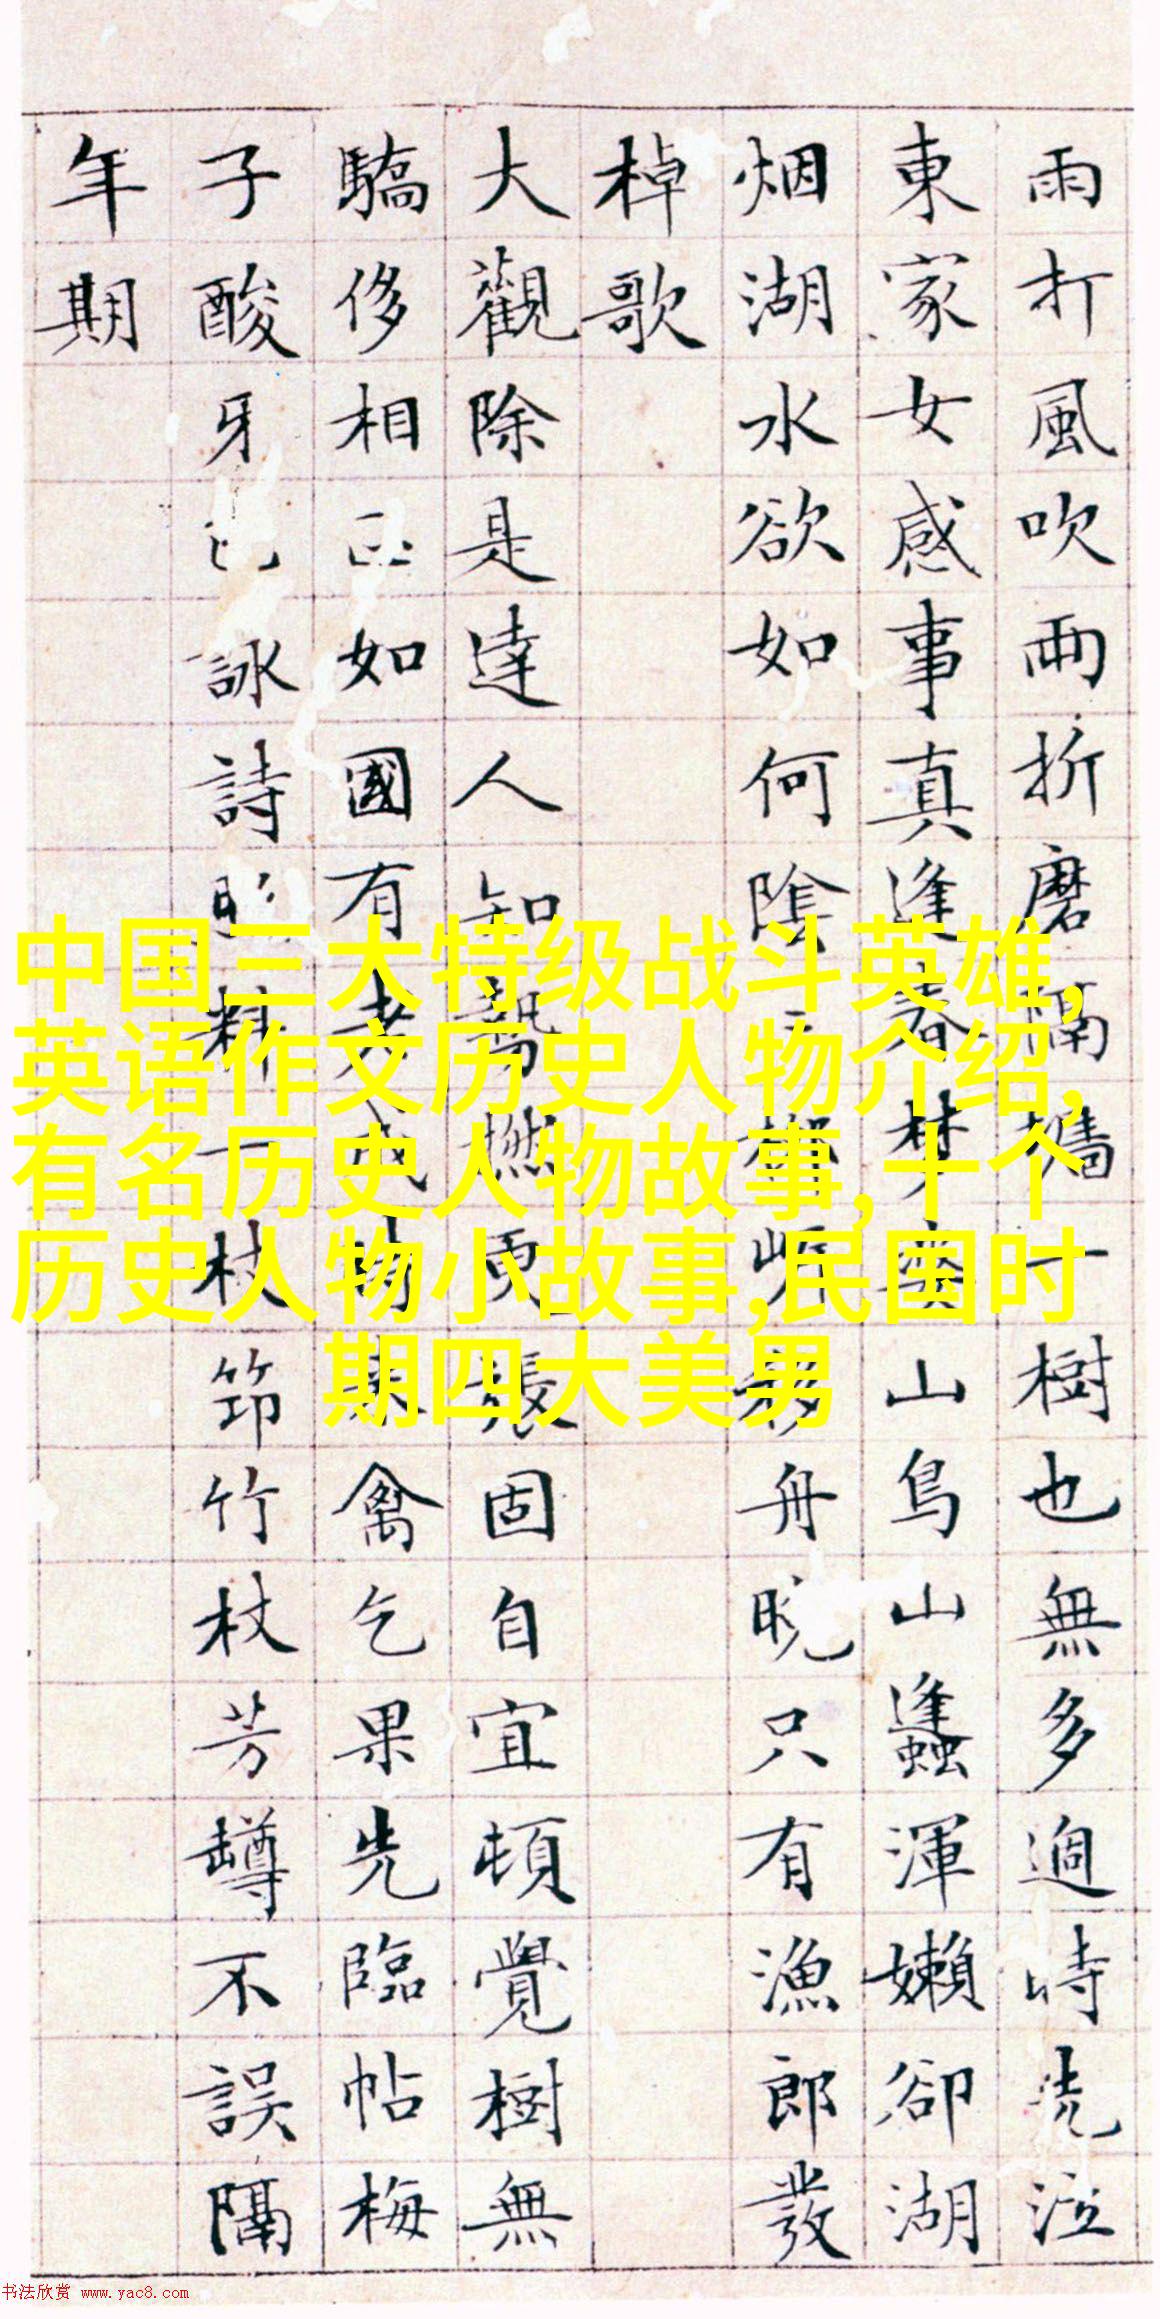 雨打風吹雨折磨隔墻一樹也無多過時洗泣
東家女感事真逢春梦奕山鳥山蠭渾嬾卻湖
烟湖水欲如何陰移舟晚只有漁郎發
棹歌
大觀除是達人知鴛撚更張固自宜頓覺樹無
驕侈相如國有老成禽乞果先臨帖梅
子酸牙詠詩料一枝筇竹杖芳罇不誤隔
年期
中国三大特级战斗英雄,
英语作文历史人物介绍,
有名历史人物故事,十个
历史人物小故事,民国时
期四大美男
书法欣赏 www.yac8.com